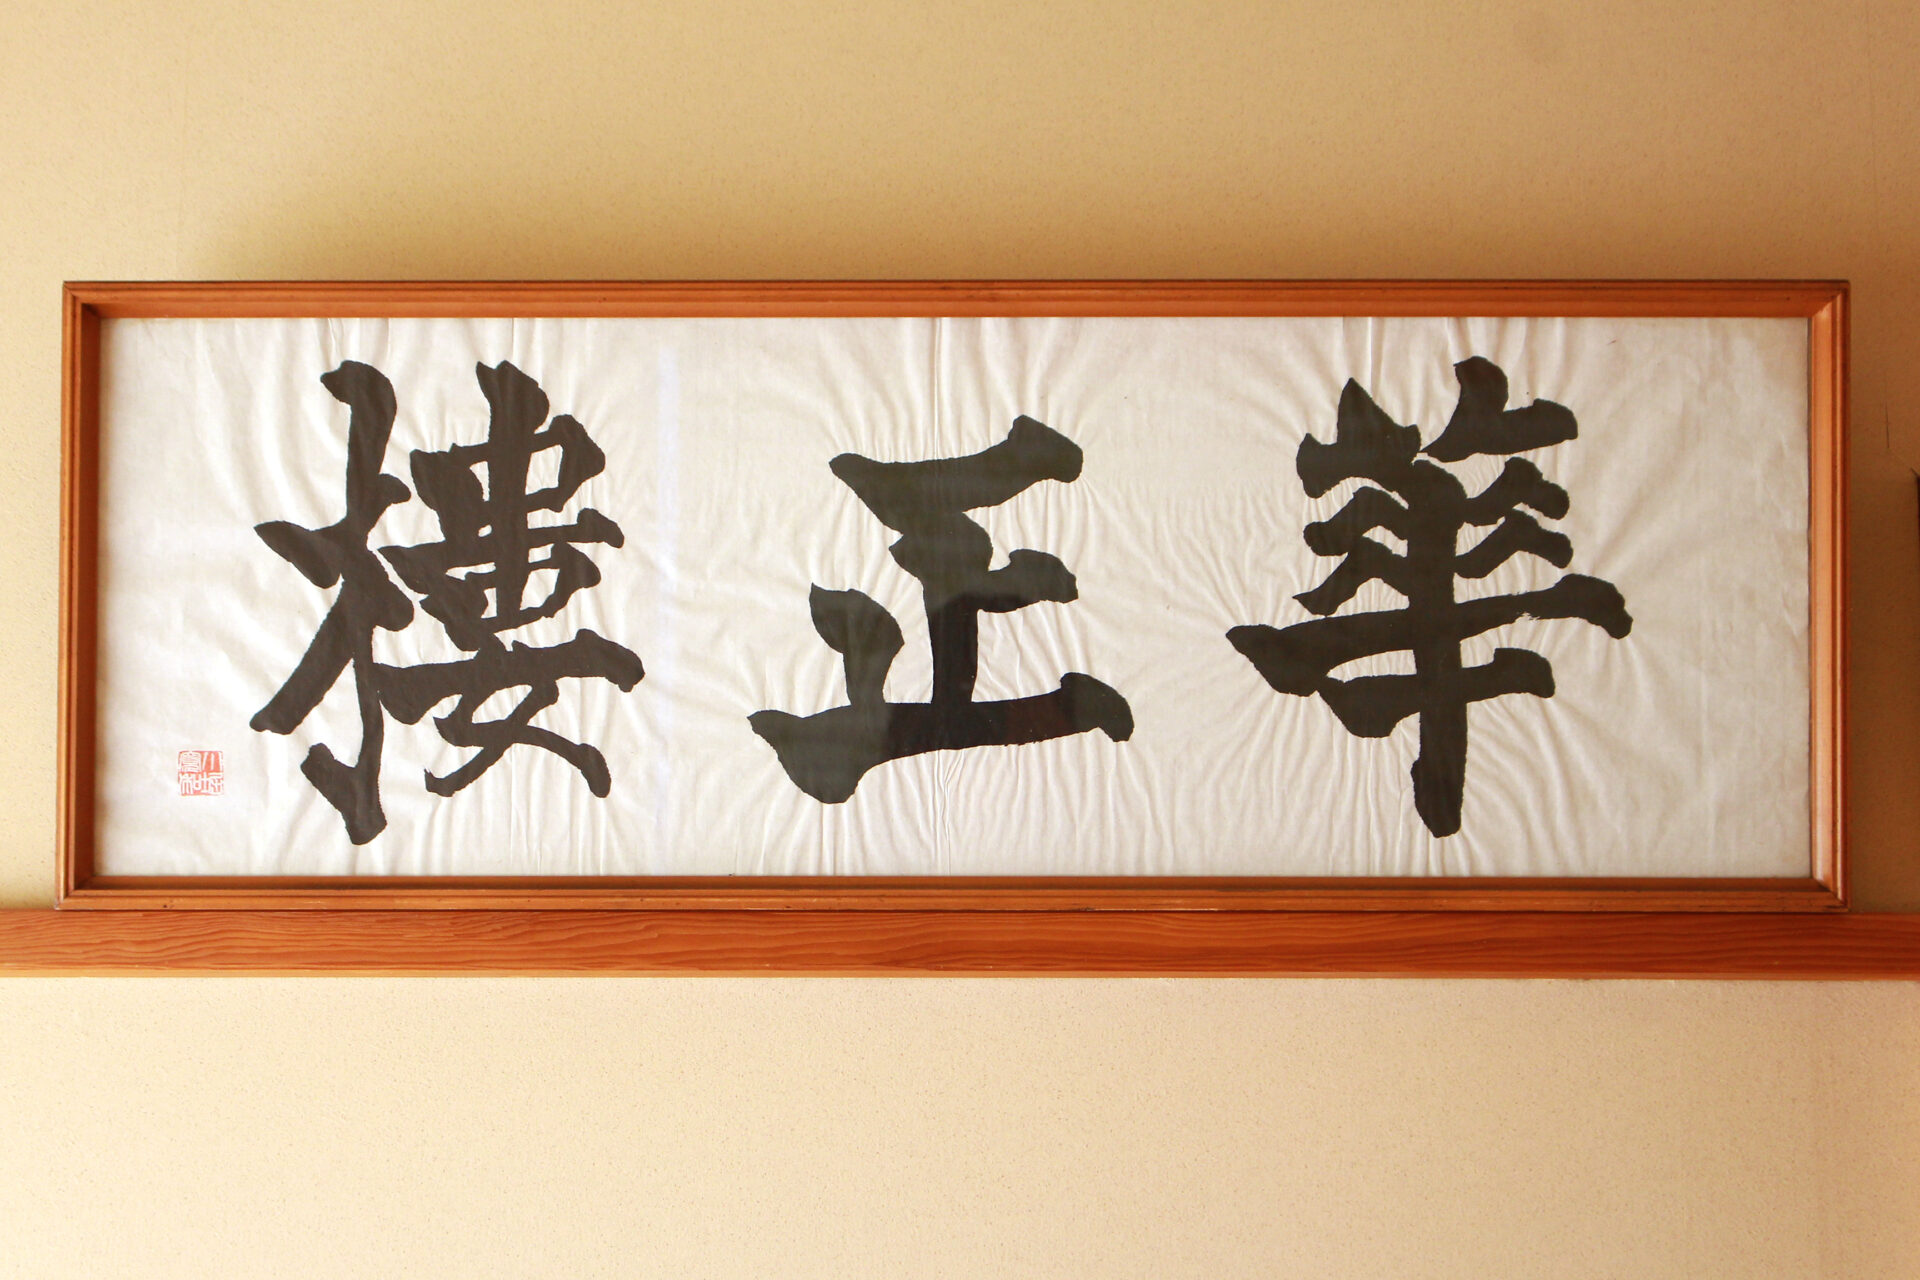 華正樓